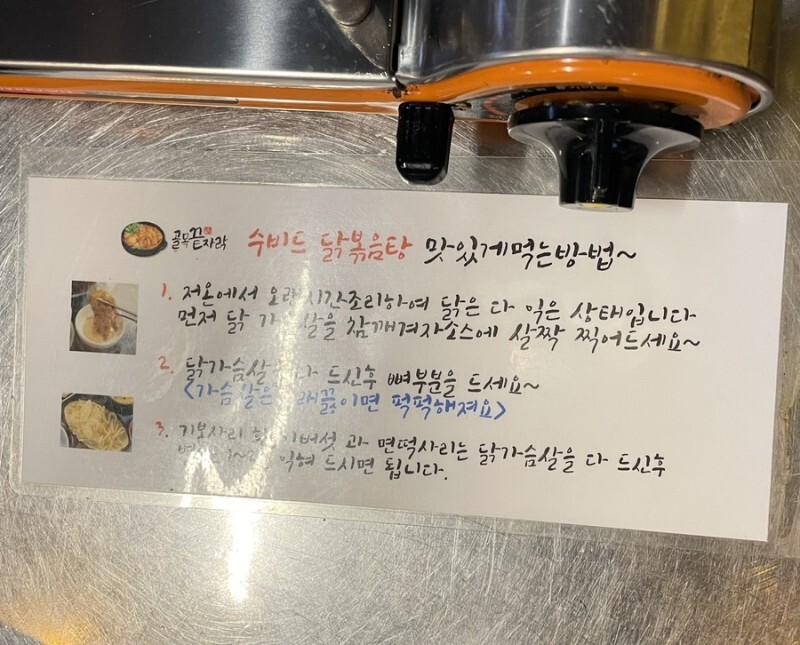 골목끝자락
수비드 닭볶음탕 맛있게먹는방법~
1. 저온에서 오랜시간조리하여 닭은 다 익은 상태입니다
먼저 닭 가슴살을 참깨겨자소스에 살짝 찍어드세요~
2. 닭가슴살 다 드신후 뼈부분을 드세요~
<가슴살은 오래끓이면 퍽퍽해져요>
3. 기본사리 과 면떡사리는 닭가슴살을 다 드신후
익혀 드시면 됩니다.